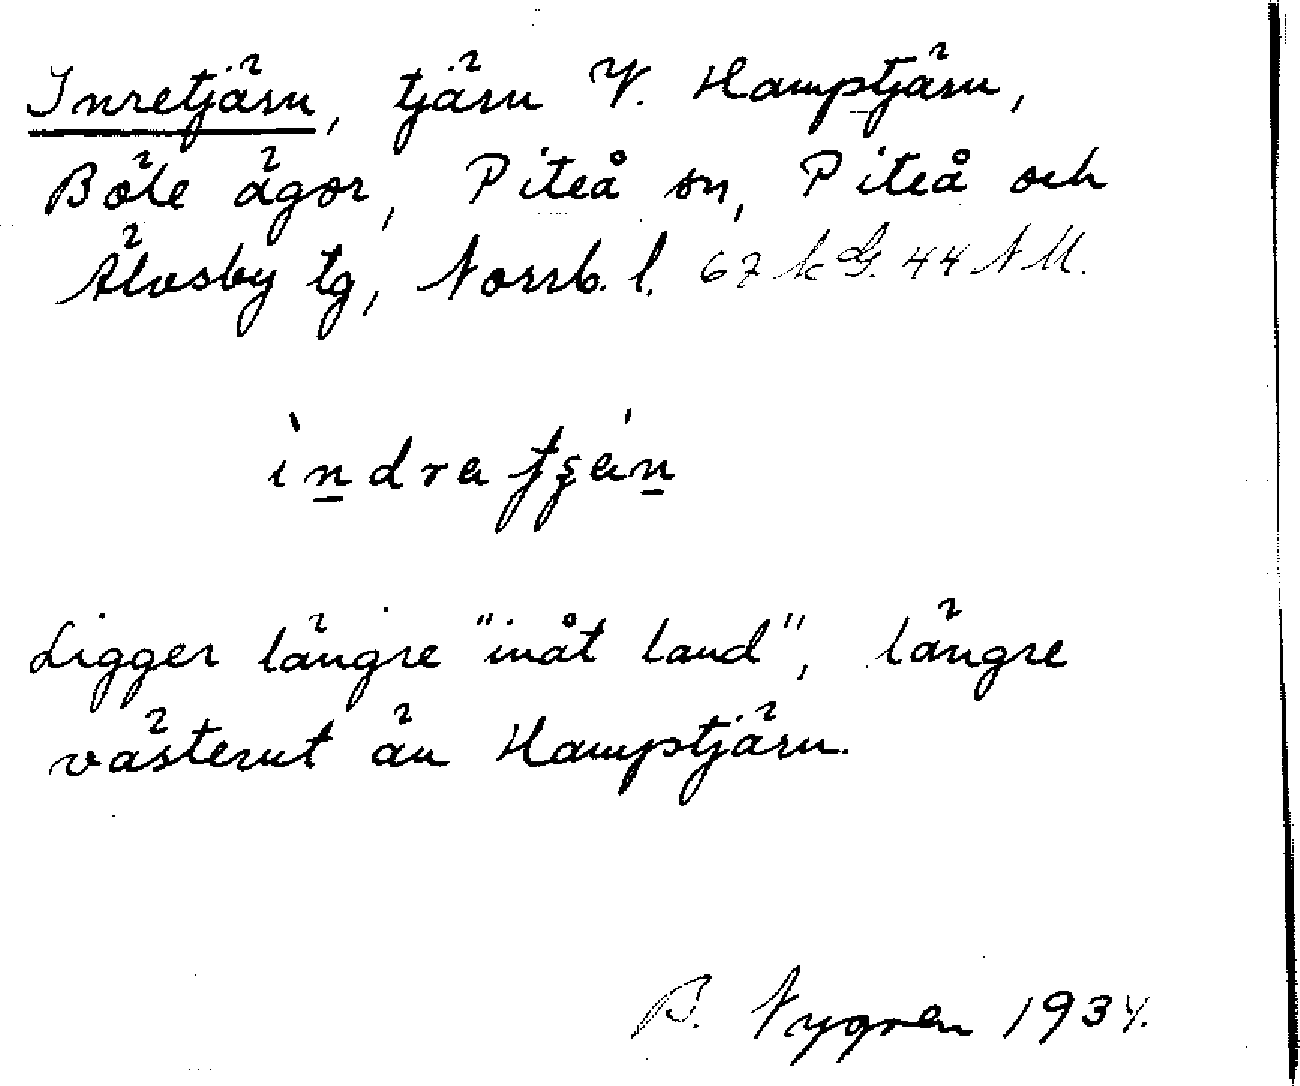 Inretjärn, tjärn V. Hamptjärn,
Böle ägor, Piteå sn, Piteå och
Älvsby tg, Norrb. l. 67 k G. 44 N M.
ìndra tʂán
Ligger längre "inåt land", längre
västerut än Hamptjärn.
B. Nygren 1934.